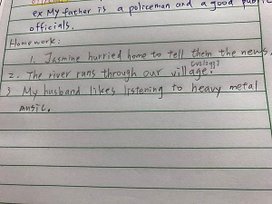 ex My father is a policeman and a good public
officials.
Homework:
1. Jasmine hurried home to tell them the news.
2. The river runs through our village.
3 My husband likes listening to heavy metal
music.